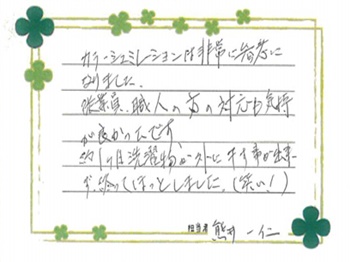 カラーシュミレーションは非常に参考に
なりました。
従業員、職人の方の対応も気持
が良かったです。
約1ヶ月洗濯物が外に干す事が出来
ず、終ってほっとしました。(笑い!)
担当者 熊井 一仁